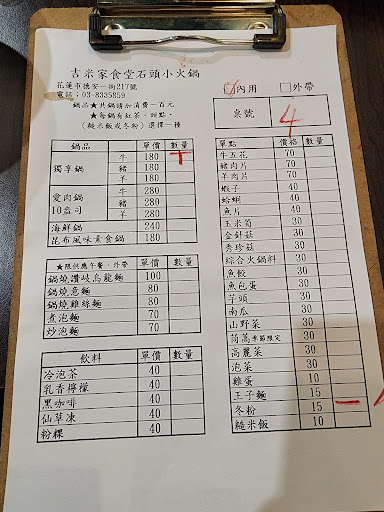 吉米家食堂石頭小火鍋
花蓮市德安一街217號
電話：03-8335859
鍋品★共鍋請加消費一百元
★每鍋有紅茶、甜點、
(糙米飯或冬粉)選擇一種
☑內用 □外帶
桌號 4
鍋品 單價 數量
獨享鍋
牛 180 一
豬 180
羊 180
愛肉鍋
10盎司
牛 280
豬 280
羊 280
海鮮鍋 240
昆布風味素食鍋 180
★限供應午餐、外帶 單價 數量
鍋燒讚岐烏龍麵 100
鍋燒意麵 80
鍋燒雞絲麵 80
煮泡麵 70
炒泡麵 70
飲料 單價 數量
冷泡茶 40
乳香檸檬 40
黑咖啡 40
仙草凍 40
粉粿 40
單點 價格 數量
牛五花 70
豬肉片 70
羊肉片 70
蝦子 40
蛤蜊 40
魚片 40
玉米筍 30
金針菇 30
秀珍菇 30
綜合火鍋料 30
魚餃 30
魚包蛋 30
芋頭 30
南瓜 30
山野菜 30
茼蒿季節限定 30
高麗菜 30
泡菜 30
雞蛋 10
王子麵 15
冬粉 15 一
糙米飯 10